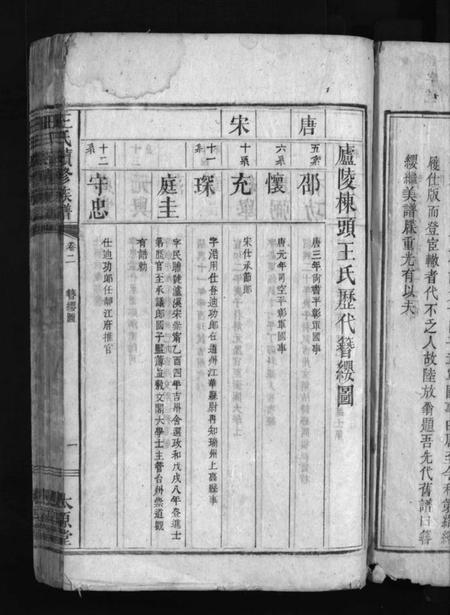 履仕版而登宦轍者代不乏人故陸放翁題吾先代舊譜曰簪
纓繼美譜牒重光有以夫
廬陵棟頭王氏歷代簪纓圖
唐
五系
邵
唐三年尚書平彰軍國事
六系
懷
唐元年司空平彰軍國事
宋
十系
充
宋仕承節郎
十一系
琛
字浩用仕各迪功郎在道州江華縣尉再知瑞州上高縣事
庭圭
字民瞻號瀘溪宋崇甯乙酉四年吉州舍選政和戊戌八年登進士
第歷官至承議郎國子監簿直敷文閣大學士主管台州崇道觀
有誥勅
十二系
守忠
仕迪功郎任靜江府推官
王氏續修族譜
卷二
簪纓圖
一
太原堂